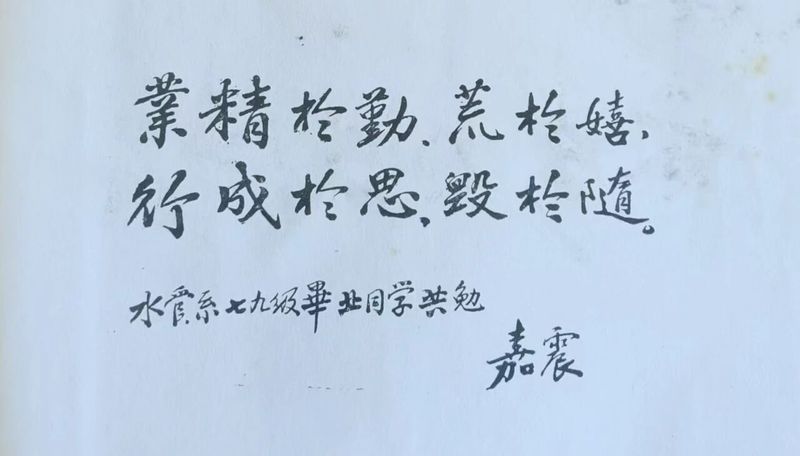 業精於勤、荒於嬉、
行成於思、毀於隨。
水資系七九級畢业同学共勉
嘉震